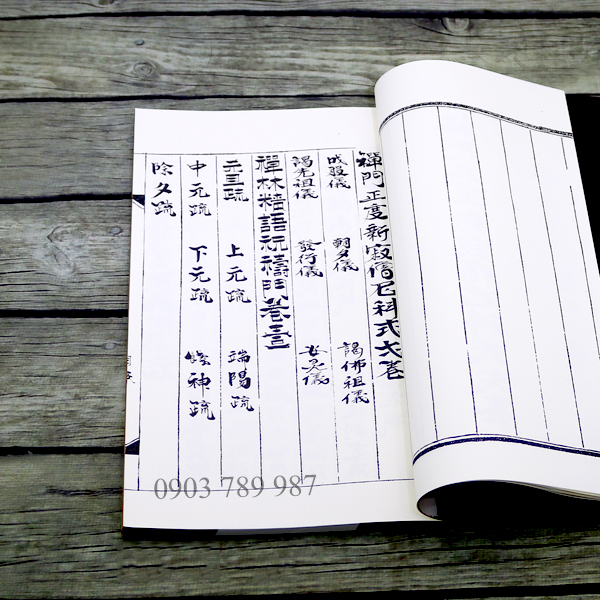 禪門正度新寂僧尼科式大卷
成服儀 朝夕儀 謁佛祖儀
謁先祖儀 發行儀 安灵儀
禪林精語祝禱門卷
元旦疏 上元疏 端陽疏
中元疏 下元疏 神疏
除夕疏
0903 789 987